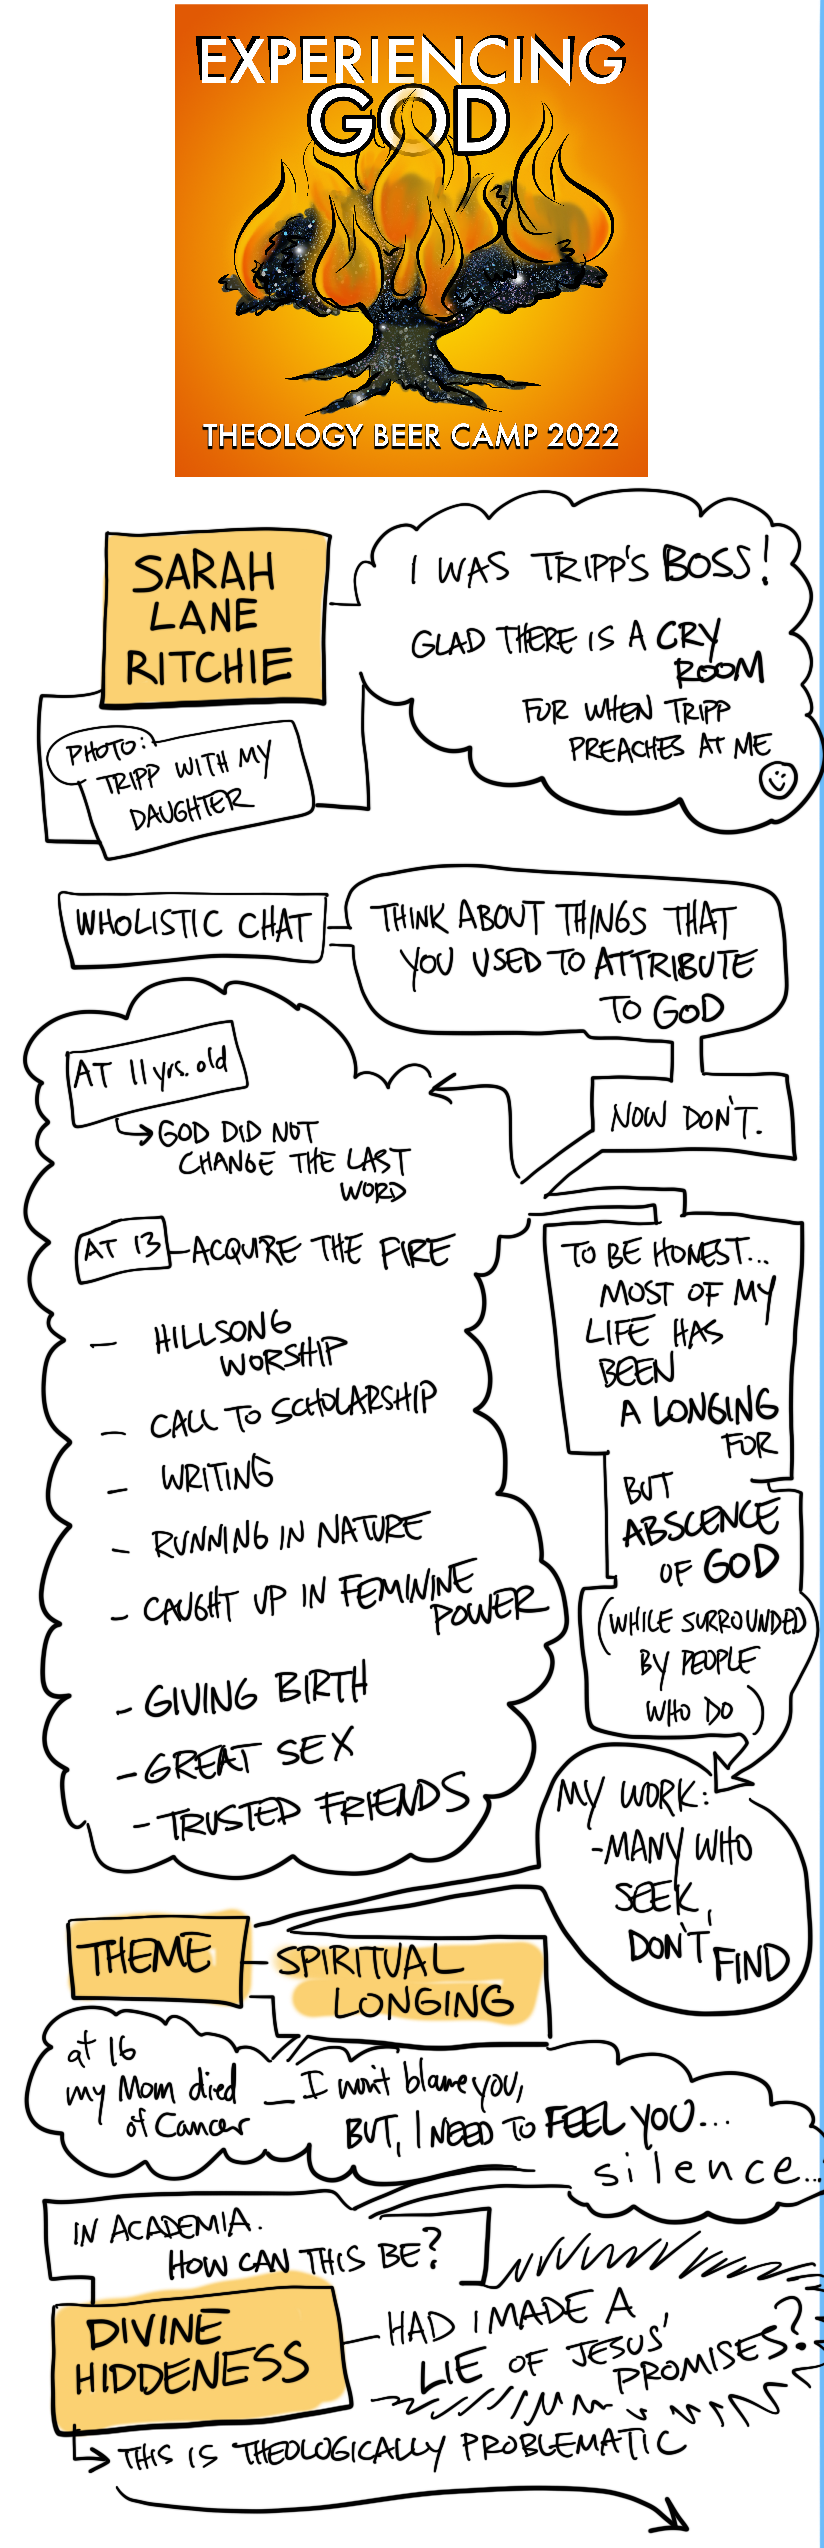 EXPERIENCING
GOD
THEOLOGY BEER CAMP 2022
SARAH
LANE
RITCHIE
I WAS TRIPP'S BOSS!
GLAD THERE IS A CRY
ROOM
FOR WHEN TRIPP
PREACHES AT ME
PHOTO:
TRIPP WITH MY
DAUGHTER
WHOLISTIC CHAT
THINK ABOUT THINGS THAT
YOU USED TO ATTRIBUTE
TO GOD
NOW DON'T.
AT 11 yrs. old
GOD DID NOT
CHANGE THE LAST
WORD
AT 13 - ACQUIRE THE FIRE
- HILLSONG
WORSHIP
- CALL TO SCHOLARSHIP
- WRITING
- RUNNING IN NATURE
- CAUGHT UP IN FEMININE
POWER
- GIVING BIRTH
- GREAT SEX
- TRUSTED FRIENDS
TO BE HONEST...
MOST OF MY
LIFE HAS
BEEN
A LONGING
FOR
BUT
ABSCENCE
OF GOD
(WHILE SURROUNDED
BY PEOPLE
WHO DO)
MY WORK:
-MANY WHO
SEEK,
DON'T FIND
THEME - SPIRITUAL
LONGING
at 16
my Mom died
of Cancer
- I won't blame you,
BUT, I NEED TO FEEL YOU...
silence...
IN ACADEMIA.
HOW CAN THIS BE?
DIVINE
HIDDENESS
- HAD I MADE A
LIE OF JESUS'
PROMISES?
THIS IS THEOLOGICALLY PROBLEMATIC